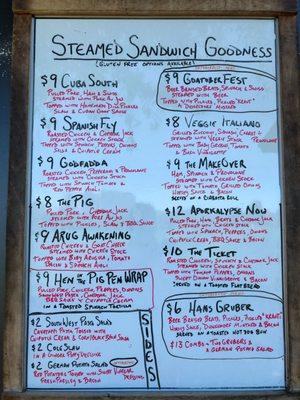 Steamed Sandwich Goodness
(Gluten Free Options Available)
$9 Cuba South
Pulled Pork, Ham & Swiss
Steamed with Pork Au Jus
Slaw & Cuban Goat Sauce
$9 Spanish Fly
Roasted Chicken & Chipotle Jack
Steamed with Chicken Stock
Topped with Spinach, Peppers, Onions
Salsa & Chipotle Cream
$9 Godfadda
Roasted Chicken, Pepperoni & Provolone
Steamed with Chicken Stock
Topped with Spinach, Tomato &
Red Pepper Aioli
$8 The Pig
Pulled Pork & Chipotle Jack
Steamed with Pork Au Jus
Topped with Pickles, Slaw & BBQ Sauce
$9 Arug Awakening
Roasted Chicken & Goat Cheese
Steamed with Chicken Stock
Topped with Baby Arugula, Tomato
Bacon & Spinach Aioli
$9 Hen the Pig Pen Wrap
Pulled Pork, Chicken, Peppers, Onions
BBQ Sauce & Chipotle Cream
in a Toasted Spinach Tortilla
$2 South West Pasta Salad
Chipotle Cream & Corn Black Bean Salsa
$2 Cole Slaw
in a Ginger Poppy Dressing
$2 German Potato Salad
Red Potatoes Tossed with Sweet Vinegar
Fresh Parsley & Bacon
Sides
$9 Goatober Fest
Beer Braised Brats, Pickles & Swiss
Steamed with Beer
Topped with Pickled, Pickled "Kraut"
& Dusseldorf Mustard
$8 Veggie Italiano
Grilled Zucchini, Squash, Carrot &
Steamed with Veggie Stock
Topped with Baby Greens, Tomato
& Basil Vinaigrette
$9 The MakeOver
Ham, Spinach & Provolone
Steamed with Chicken Stock
Topped with Tomato, Grilled Onions,
Honey Sauce & Bacon
Served on a Ciabatta Roll
$12 Aporkalypse Now
Pulled Pork, Ham, Chipotle Jack
Steamed with Chicken Stock
Topped with Spinach, Peppers, Onions
Chipotle Cream, BBQ Sauce & Bacon
$10 Meal Ticket
Roasted Chicken, Spinach & Chipotle Jack
Steamed with Chicken Stock
Topped with Tomato, Peppers, Onions
Sweet Onion Vinaigrette & Bacon
Served on a Toasted Flat Bread
$6 Hans Gruber
Beer Braised Brats, Pickled, Pickled "Kraut"
Honey Sauce, Dusseldorf Mustard & Bacon
Served on a Toasted Hot Dog Bun
$13 Combo - Two Grubers &
a German Potato Salad